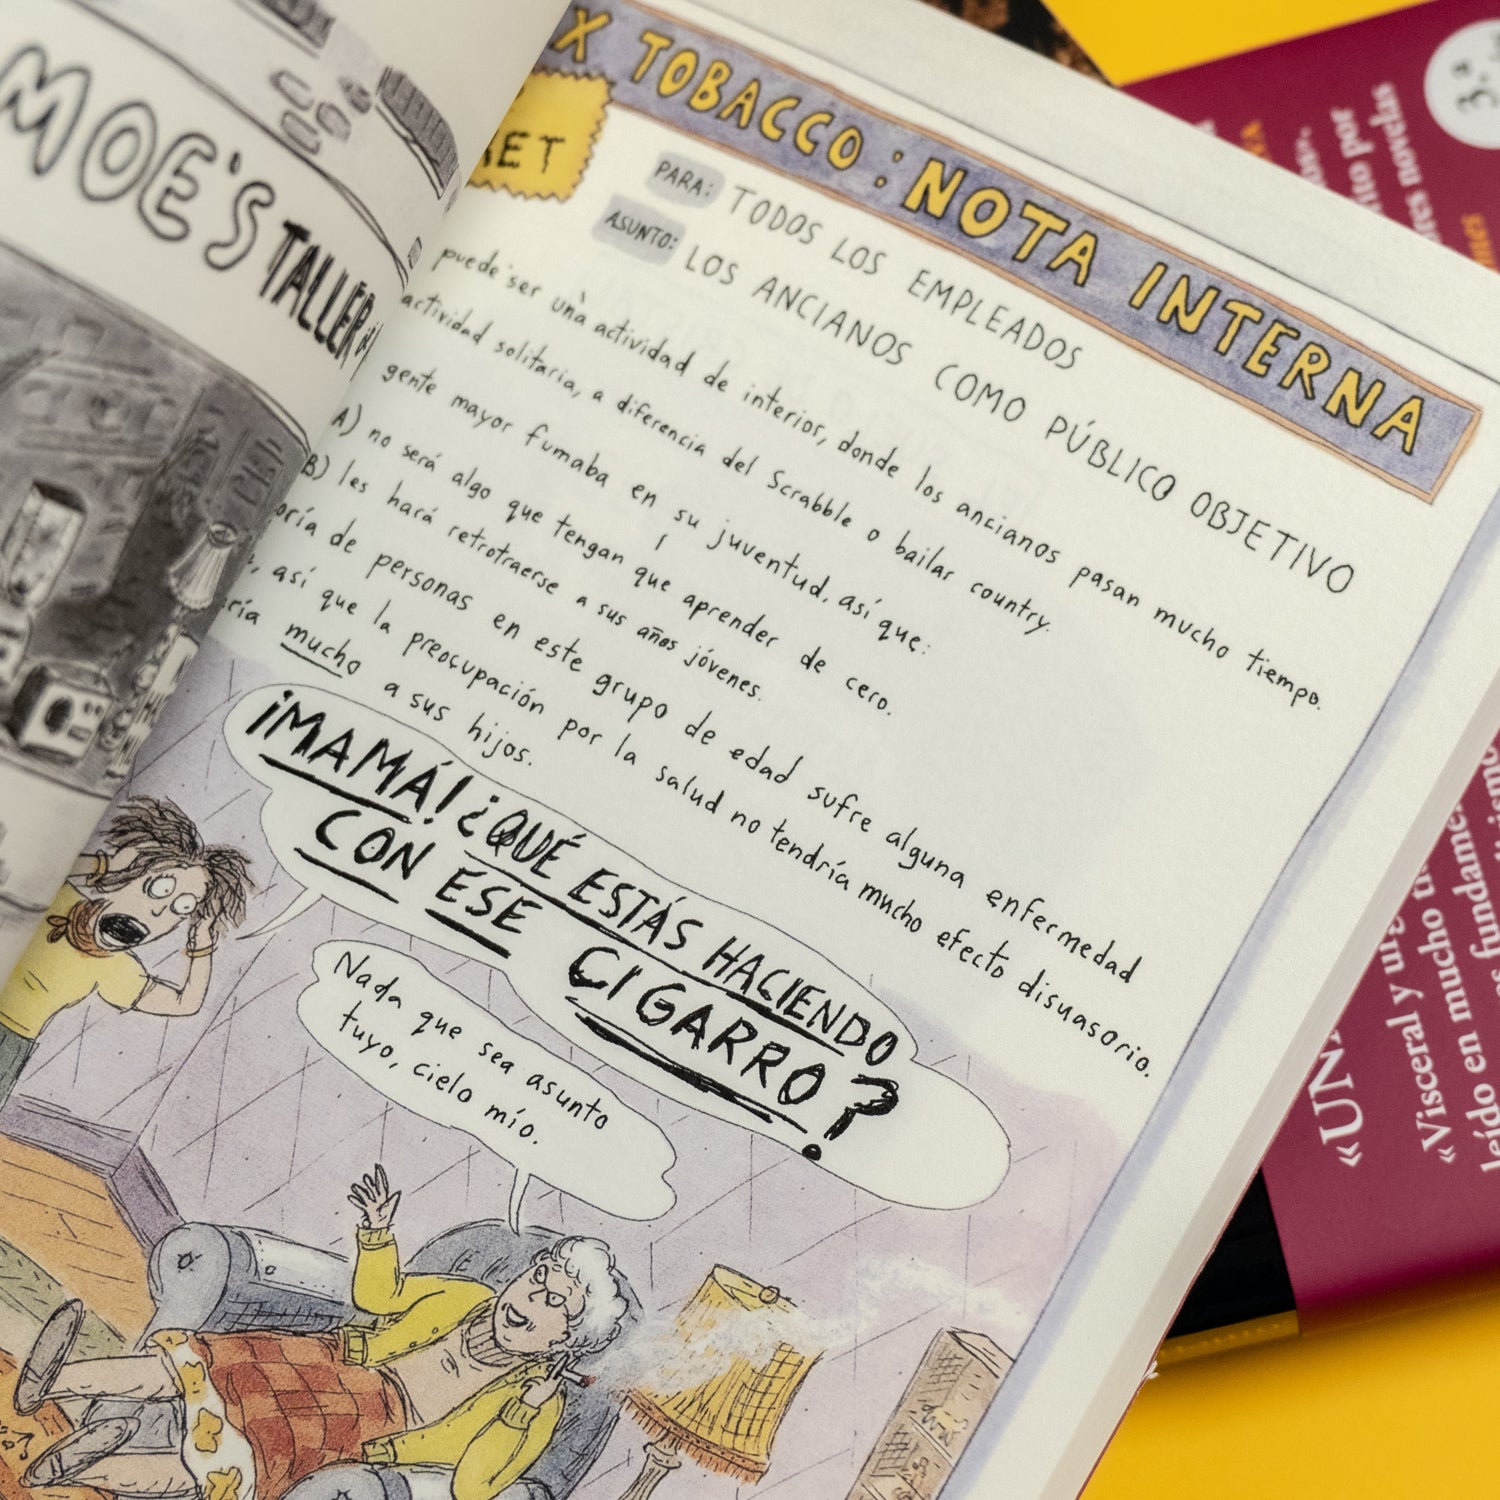 MOE'S TALLER
X TOBACCO: NOTA INTERNA
PARA: TODOS LOS EMPLEADOS
ASUNTO: LOS ANCIANOS COMO PÚBLICO OBJETIVO
puede ser una actividad de interior, donde los ancianos pasan mucho tiempo.
actividad solitaria, a diferencia del Scrabble o bailar country.
gente mayor fumaba en su juventud, así que:
A) no será algo que tengan que aprender de cero.
B) les hará retrotraerse a sus años jóvenes.
de personas en este grupo de edad sufre alguna enfermedad
así que la preocupación por la salud no tendría mucho efecto disuasorio.
mucho a sus hijos.
¡MAMÁ! ¿QUÉ ESTÁS HACIENDO
CON ESE CIGARRO?
Nada que sea asunto
tuyo, cielo mío.
3.ª
«UNA
«Visceral y
leído en mucho